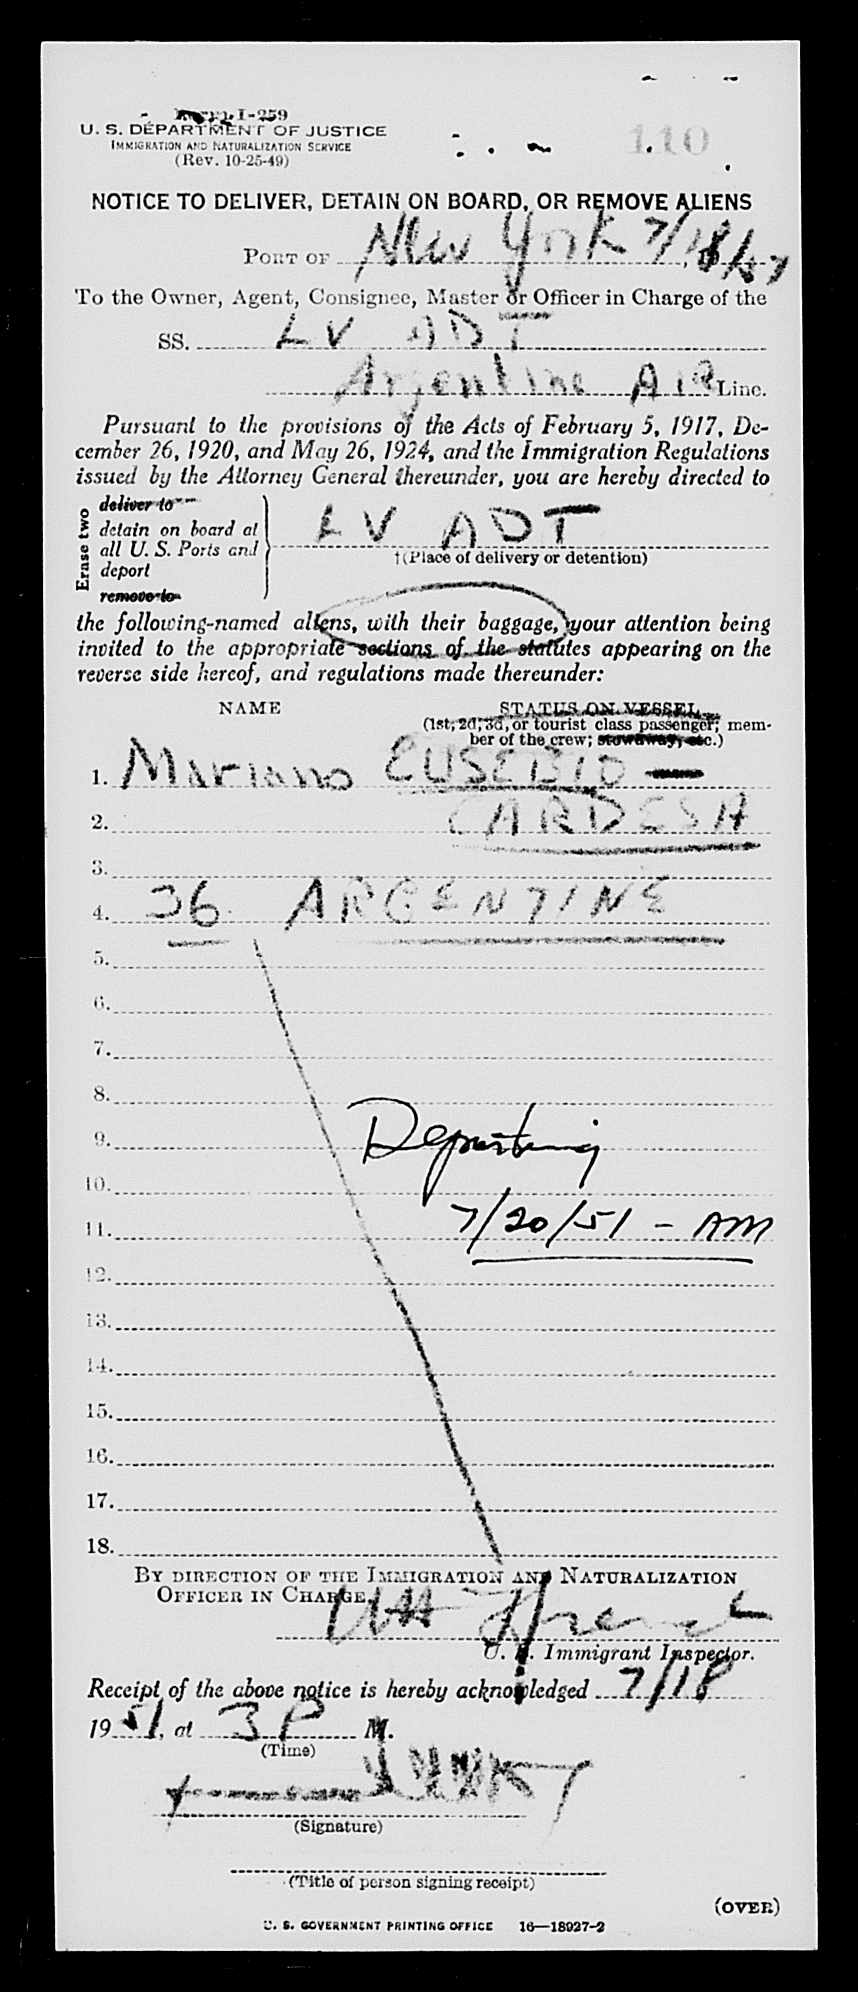 Form I-259
U. S. DEPARTMENT OF JUSTICE
IMMIGRATION AND NATURALIZATION SERVICE
(Rev. 10-25-49)
110
NOTICE TO DELIVER, DETAIN ON BOARD, OR REMOVE ALIENS
PORT OF New York 7/18/51
To the Owner, Agent, Consignee, Master or Officer in Charge of the
SS. LV ADT
Argentine Air Line.
Pursuant to the provisions of the Acts of February 5, 1917, De-
cember 26, 1920, and May 26, 1924, and the Immigration Regulations
issued by the Attorney General thereunder, you are hereby directed to
Erase two
deliver to
detain on board at
all U. S. Ports and
deport
remove to
LV ADT
†(Place of delivery or detention)
the following-named aliens, with their baggage, your attention being
invited to the appropriate sections of the statutes appearing on the
reverse side hereof, and regulations made thereunder:
NAME STATUS ON VESSEL
(1st, 2d, 3d, or tourist class passenger; mem-
ber of the crew; stowaway, etc.)
1. Mariano EUSEBIO
2. CARDESA
3.
4. 36 ARGENTINE
5.
6.
7.
8.
9. Departing
10.
11. 7/20/51 - AM
12.
13.
14.
15.
16.
17.
18.
BY DIRECTION OF THE IMMIGRATION AND NATURALIZATION
OFFICER IN CHARGE,
U. S. Immigrant Inspector.
Receipt of the above notice is hereby acknowledged 7/18
1951, at 3 P M.
(Time)
(Signature)
(Title of person signing receipt)
(OVER)
U. S. GOVERNMENT PRINTING OFFICE 16—18927-2